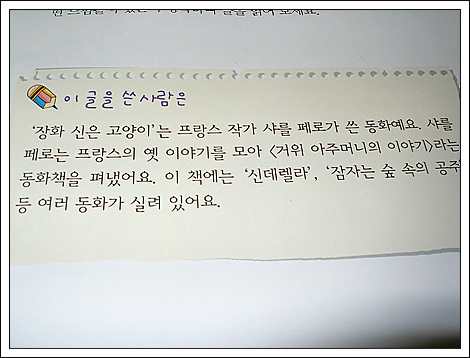 글을 읽어 보세요.
이 글을 쓴 사람은
'장화 신은 고양이'는 프랑스 작가 샤를 페로가 쓴 동화예요. 샤를
페로는 프랑스의 옛 이야기를 모아 〈거위 아주머니의 이야기〉라는
동화책을 펴냈어요. 이 책에는 '신데렐라', '잠자는 숲 속의 공주
등 여러 동화가 실려 있어요.